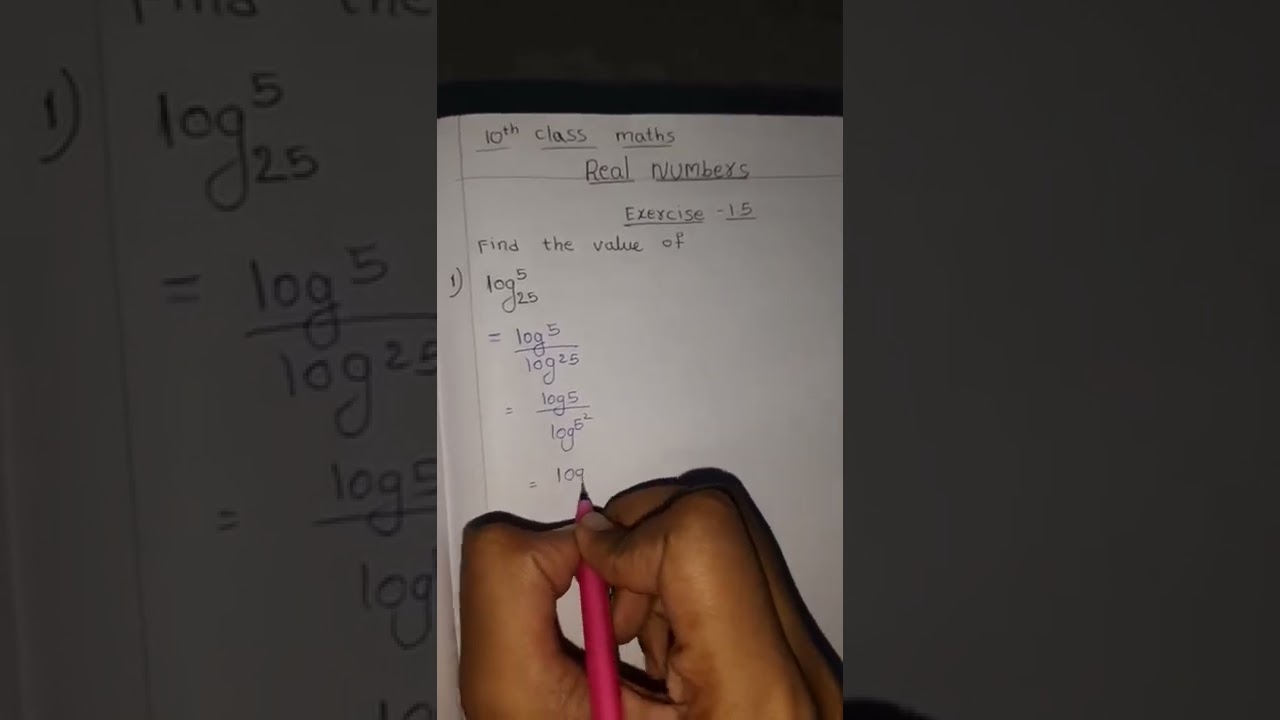 10th class maths
Real Numbers
Exercise - 1.5
Find the value of
1) log⁵₂₅
= log 5 / log 25
= log 5 / log 5²
= log